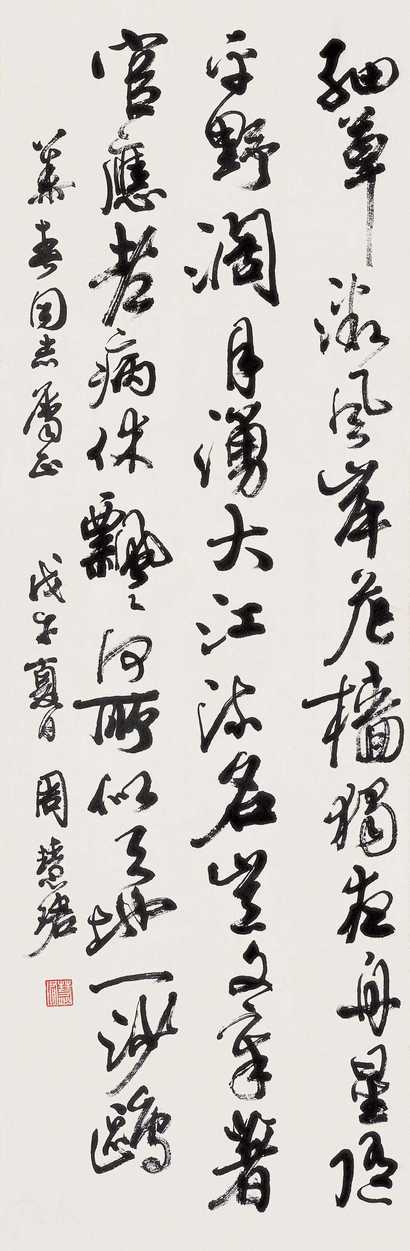 細草微風岸危檣獨夜舟星隨
平野濶月湧大江流名豈文章著
官應老病休飄々何所似天地一沙鷗
春同志屬正 戊午夏日 周慧珺